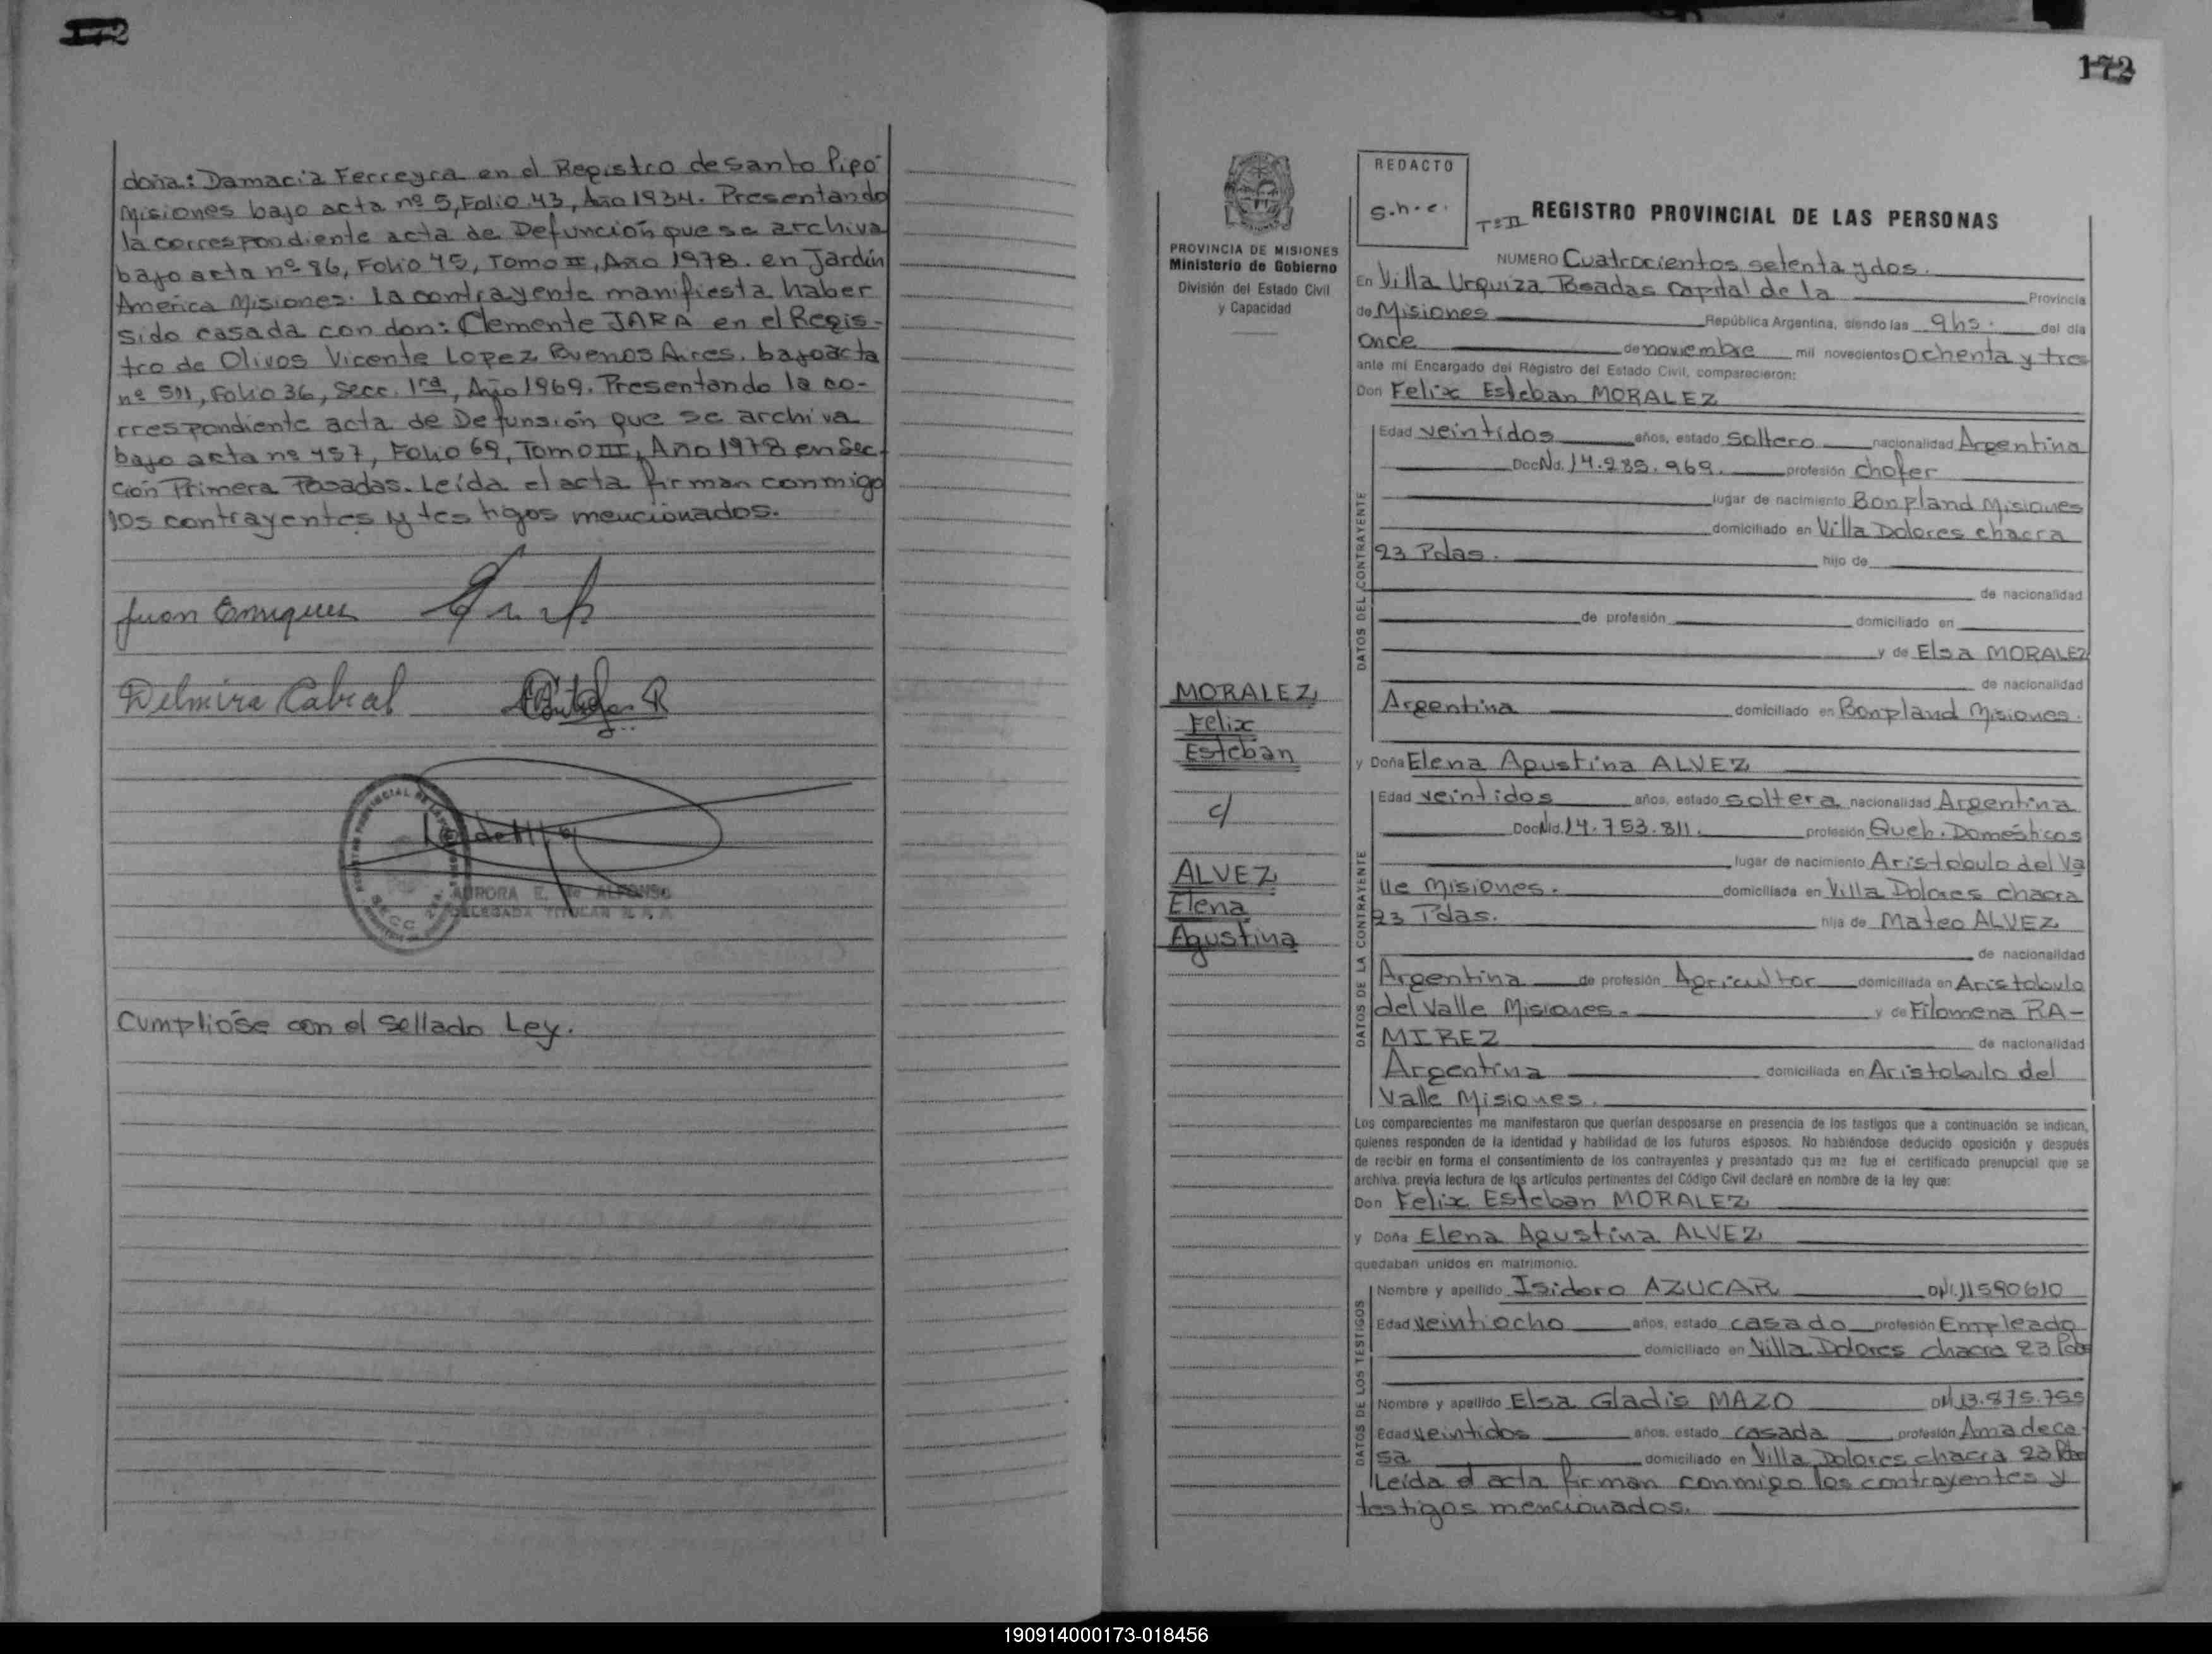 172
doña: Damacia Ferreyra en el Registro de Santo Pipó
Misiones bajo acta nº 5, Folio 43, Año 1934. Presentando
la correspondiente acta de Defunción que se archiva
bajo acta nº 86, Folio 45, Tomo II, Año 1978. en Jardín
América Misiones. la contrayente manifiesta haber
sido casada con don: Clemente JARA en el Regis-
tro de Olivos Vicente Lopez Buenos Aires. bajo acta
nº 511, Folio 36, Secc. 1ra, Año 1969. Presentando la co-
rrespondiente acta de Defunsión que se archiva
bajo acta nº 457, Folio 69, Tomo III, Año 1978 en Sec-
ción Primera Posadas. Leída el acta firman conmigo
los contrayentes y testigos mencionados.
Juan Enriquez
Delmira Cabral
REGISTRO PROVINCIAL DE LAS
SECC. 2da.
AURORA E. de ALFONSO
DELEGADA TITULAR
Cumplióse con el Sellado Ley.
172
PROVINCIA DE MISIONES
Ministerio de Gobierno
División del Estado Civil
y Capacidad
MORALEZ
Felix
Esteban
c/
ALVEZ
Elena
Agustina
REDACTO
s.h.c.
Tº II REGISTRO PROVINCIAL DE LAS PERSONAS
NUMERO Cuatrocientos setenta y dos.
En Villa Urquiza Posadas Capital de la Provincia
de Misiones República Argentina, siendo las 9hs. del día
Once de noviembre mil novecientos Ochenta y tres
ante mí Encargado del Registro del Estado Civil, comparecieron:
Don Felix Esteban MORALEZ
DATOS DEL CONTRAYENTE
Edad veintidos años, estado Soltero nacionalidad Argentina
Doc Nd. 14.989.969. profesión chofer
lugar de nacimiento Bonpland Misiones
domiciliado en Villa Dolores chacra
23 Pdas. hijo de
de nacionalidad
de profesión domiciliado en
y de Elsa MORALEZ
de nacionalidad
Argentina domiciliado en Bonpland Misiones.
y Doña Elena Agustina ALVEZ
DATOS DE LA CONTRAYENTE
Edad veintidos años, estado soltera nacionalidad Argentina
Doc Nd. 14.753.811. profesión Queh. Domésticos
lugar de nacimiento Aristobulo del Va
lle Misiones. domiciliada en Villa Dolores chacra
23 Pdas. hija de Mateo ALVEZ
de nacionalidad
Argentina de profesión Agricultor domiciliada en Aristobulo
del Valle Misiones. y de Filomena RA-
MIREZ de nacionalidad
Argentina domiciliada en Aristobulo del
Valle Misiones.
Los comparecientes me manifestaron que querían desposarse en presencia de los testigos que a continuación se indican,
quienes responden de la identidad y habilidad de los futuros esposos. No habiéndose deducido oposición y después
de recibir en forma el consentimiento de los contrayentes y presentado que me fue el certificado prenupcial que se
archiva, previa lectura de los artículos pertinentes del Código Civil declaré en nombre de la ley que:
Don Felix Esteban MORALEZ
y Doña Elena Agustina ALVEZ
quedaban unidos en matrimonio.
DATOS DE LOS TESTIGOS
Nombre y apellido Isidoro AZUCAR DNI. 11590610
Edad veintiocho años, estado casado profesión Empleado
domiciliado en Villa Dolores chacra 23 Pdas
Nombre y apellido Elsa Gladis MAZO DNI 13.875.755
Edad veintidos años, estado casada profesión Ama de ca-
sa domiciliado en Villa Dolores chacra 23 Pdas
Leída el acta firman conmigo los contrayentes y
testigos mencionados.
190914000173-018456